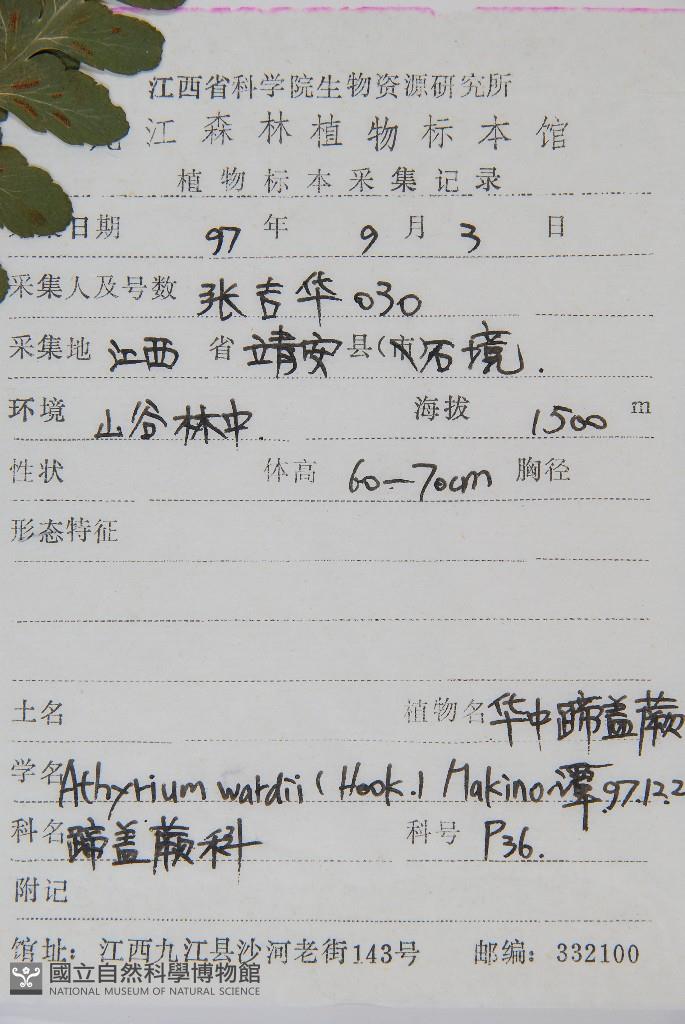 江西省科学院生物资源研究所
九江森林植物标本馆
植物标本采集记录
采集日期 97 年 9 月 3 日
采集人及号数 张吉华 030
采集地 江西 省 靖安 县(市) 石境.
环境 山谷林中. 海拔 1500 m
性状 体高 60—70cm 胸径
形态特征
土名 植物名 华中蹄盖蕨
学名 Athyrium wardii (Hook.) Makino 谭.97.12.2
科名 蹄盖蕨科 科号 P36.
附记
馆址：江西九江县沙河老街143号 邮编：332100
國立自然科學博物館
NATIONAL MUSEUM OF NATURAL SCIENCE